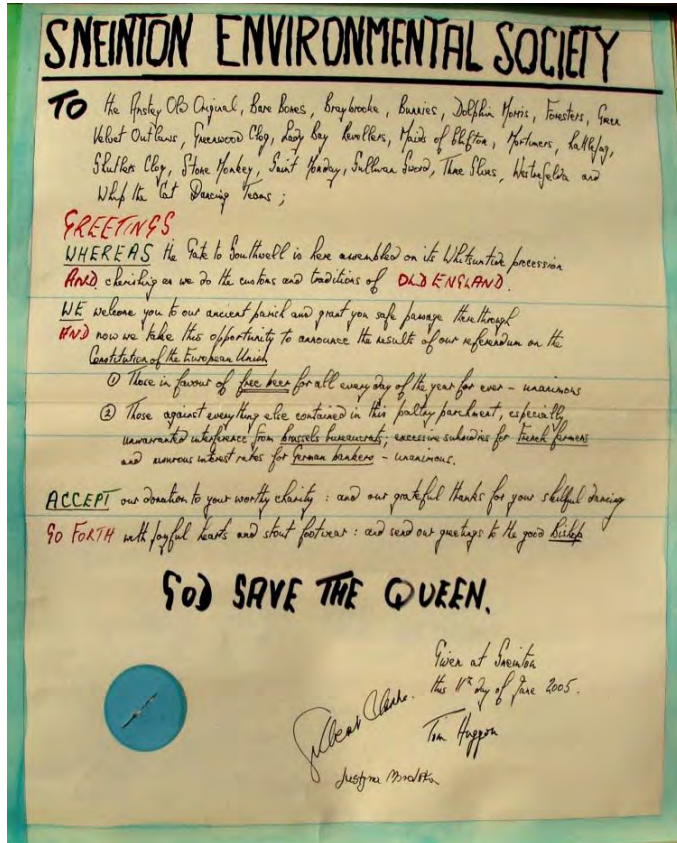 SNEINTON ENVIRONMENTAL SOCIETY
TO the Anstey Old Original, Bare Bones, Braybrooke, Bunnies, Dolphin Morris, Foresters, Green
Velvet Outlaws, Greenwood Clog, Lady Bay Revellers, Maids of Clifton, Mortimers, Rattlejag,
Shutlers Clog, Stone Monkey, Saint Monday, Sullivan Sword, Three Shires, and
Whip the Cat Dancing Teams ;
GREETINGS
WHEREAS the Gate to Southwell is here assembled on its Whitsuntide procession
AND cherishing as we do the customs and traditions of OLD ENGLAND.
WE welcome you to our ancient parish and grant you safe passage therethrough
AND now we take this opportunity to announce the results of our referendum on the
Constitution of the European Union
① Those in favour of free beer for all every day of the year for ever – unanimous
② Those against everything else contained in this paltry parchment, especially
unwarranted interference from brussels bureaucrats; excessive subsidies for French farmers
and usurous interest rates for German bankers – unanimous.
ACCEPT our donation to your worthy charity : and our grateful thanks for your skilful dancing
GO FORTH with joyful hearts and stout footwear : and send our greetings to the good Bishop
GOD SAVE THE QUEEN.
Given at Sneinton
this 11th day of June 2005.
Gilbert Clarke.
Tom Huggon
Justyna